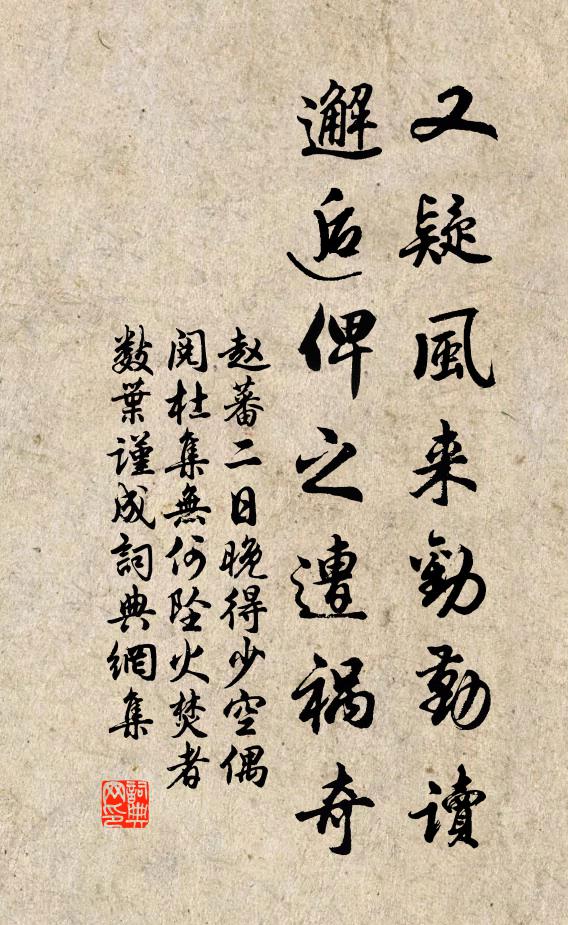 又疑風来勸勤讀
邂逅俾之遭禍奇
赵蕃二日晚得少空偶
阅杜集無何坠火焚者
数葉谨成詞典網集
詞典
网印